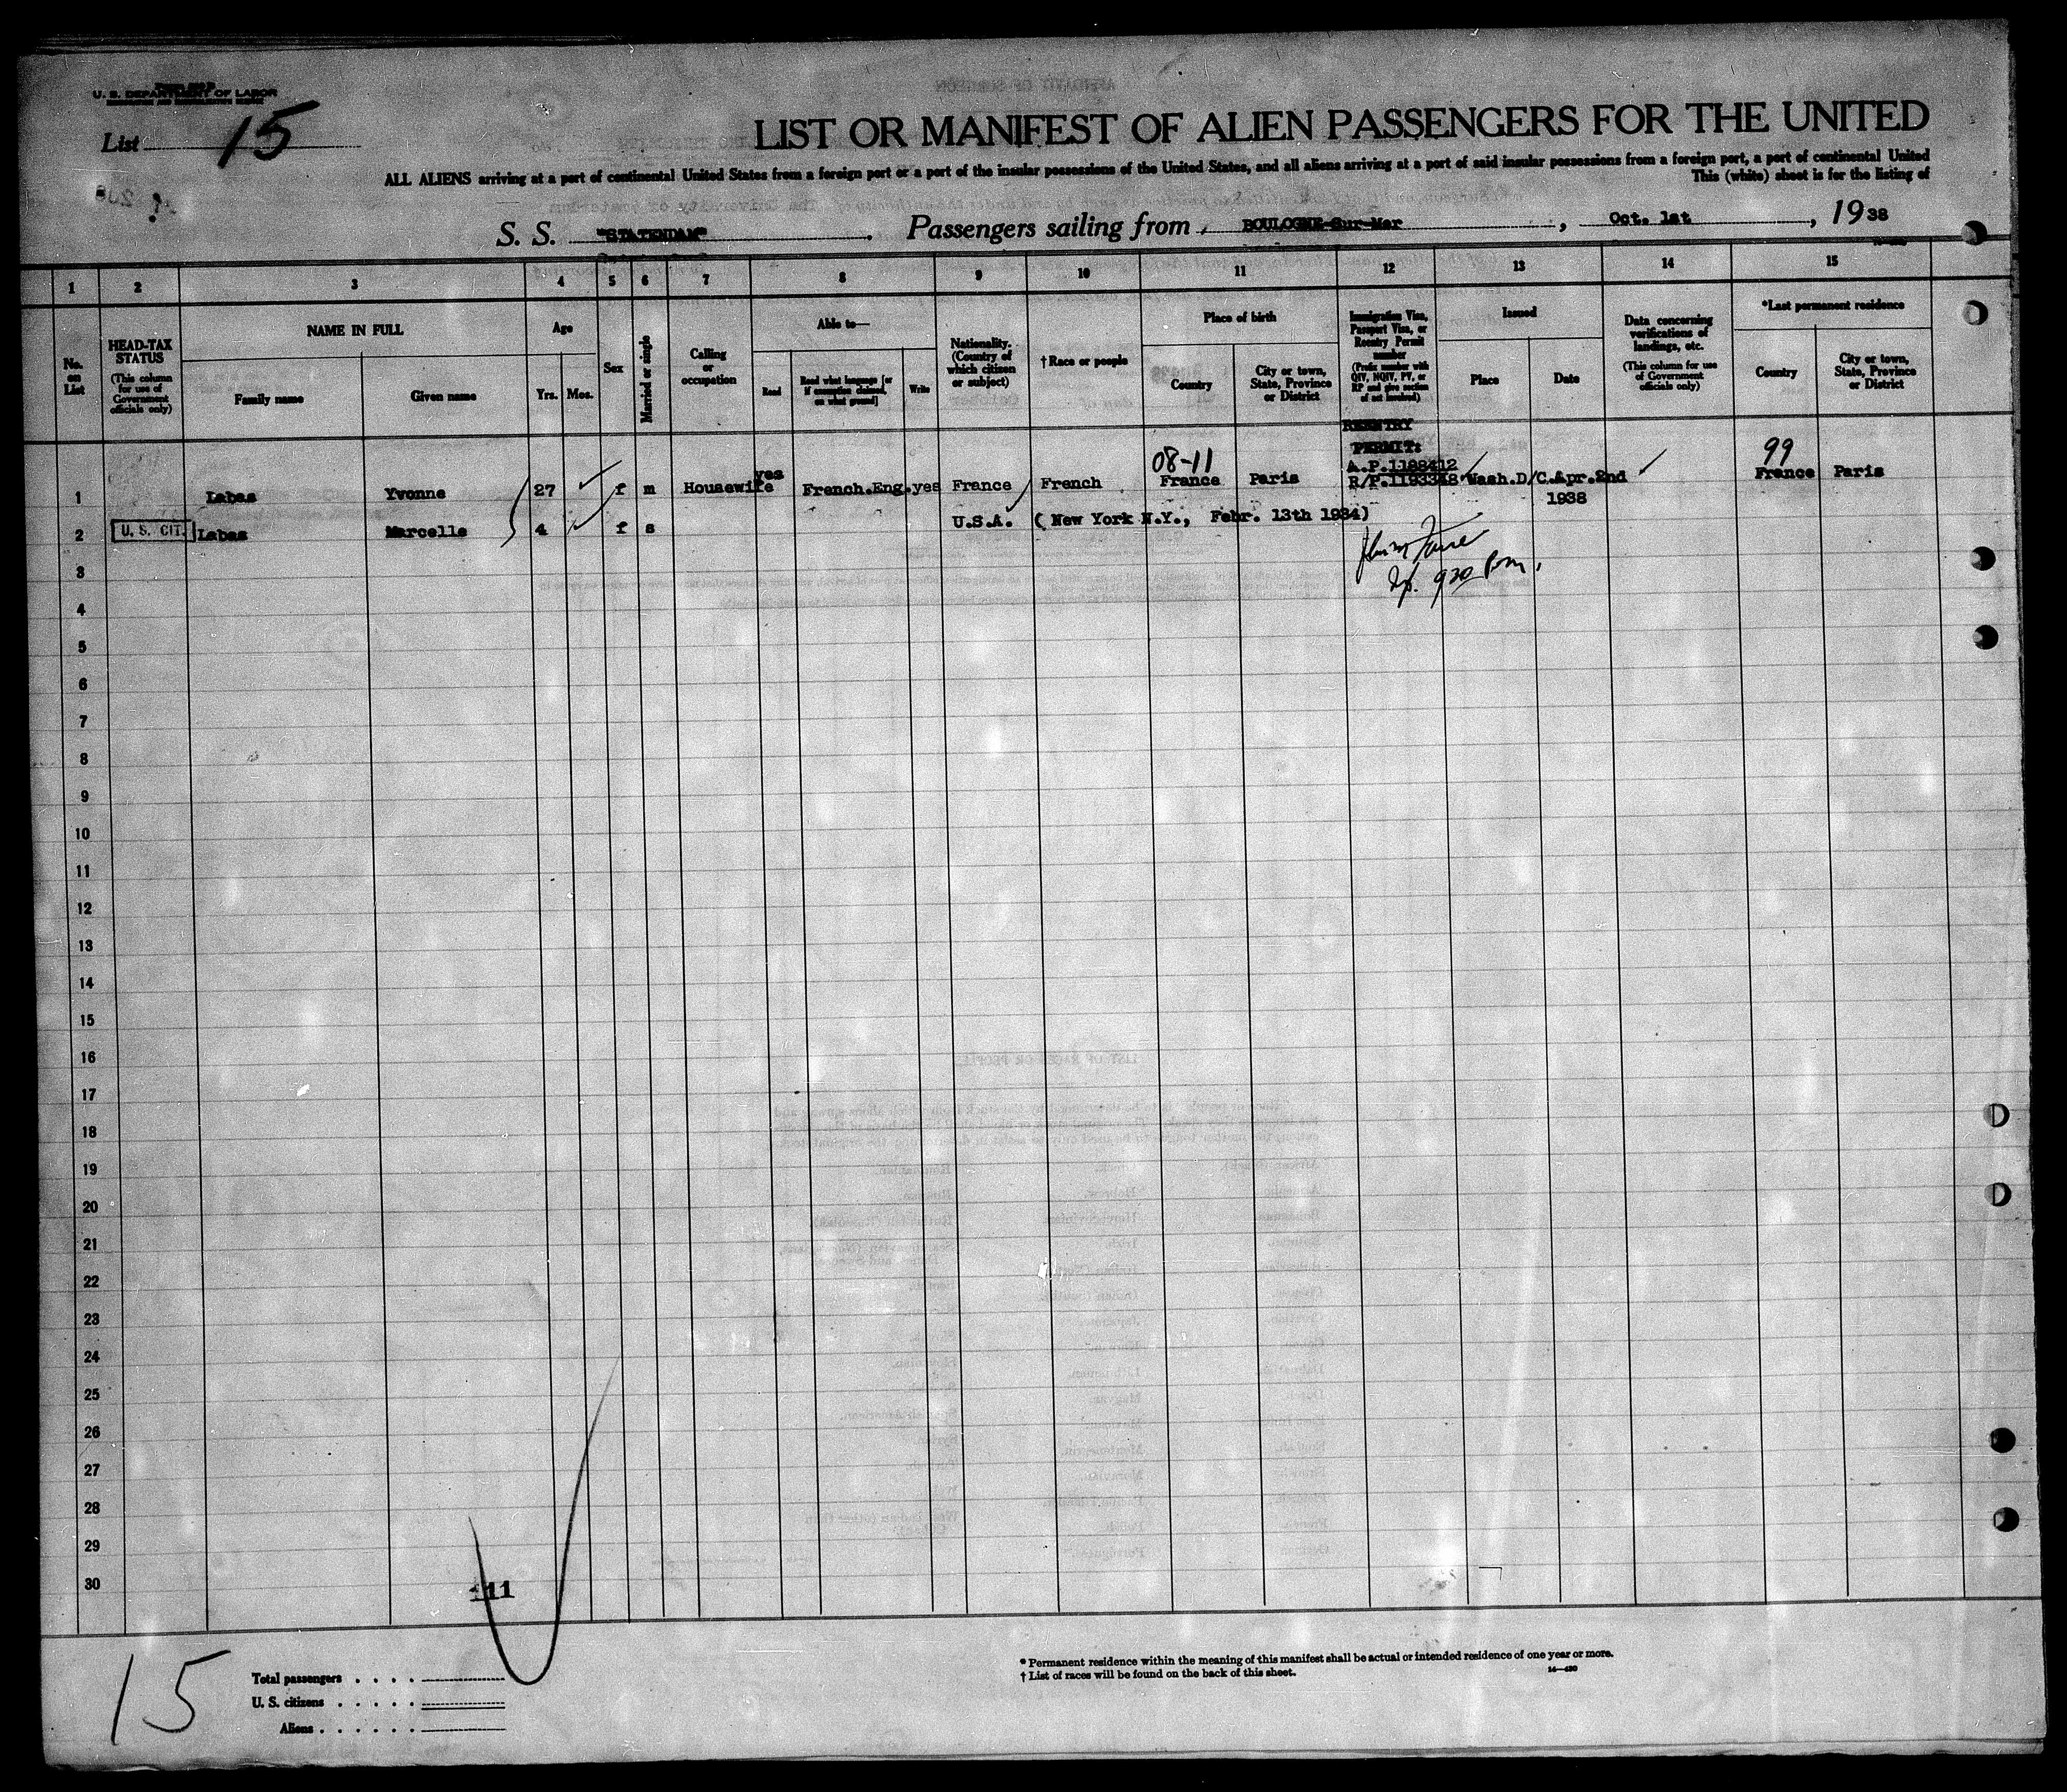 U. S. DEPARTMENT OF LABOR
List 15
LIST OR MANIFEST OF ALIEN PASSENGERS FOR THE UNITED
ALL ALIENS arriving at a port of continental United States from a foreign port or a port of the insular possessions of the United States, and all aliens arriving at a port of said insular possessions from a foreign port, a port of continental United
This (white) sheet is for the listing of
S. S. "STATENDAM", Passengers sailing from, BOULOGNE-Sur-Mer, Oct. 1st, 1938
1 2 3 4 5 6 7 8 9 10 11 12 13 14 15
No. on List
HEAD-TAX STATUS
(This column for use of Government officials only)
NAME IN FULL
Family name
Given name
Age
Yrs. Mos.
Sex
Married or single
Calling or occupation
Able to—
Read
Read what language [or if exemption claimed, on what ground]
Write
Nationality. (Country of which citizen or subject)
† Race or people
Place of birth
Country
City or town, State, Province or District
Immigration Visa, Passport Visa, or Reentry Permit number
(Prefix number with QIV, NQIV, PV, or RP and give section of act involved)
Issued
Place
Date
Data concerning verifications of landings, etc.
(This column for use of Government officials only)
*Last permanent residence
Country
City or town, State, Province or District
REENTRY
PERMIT:
08-11
99
A.P.1188412
1 Labas Yvonne 27 f m Housewife yes French.Eng. yes France French France Paris R/P.1193348 Wash.D/C. Apr.2nd France Paris
1938
2 U. S. CIT. Labas Marcelle 4 f s U.S.A. ( New York N.Y., Febr. 13th 1934)
3
9 30 Pm.
4
5
6
7
8
9
10
11
12
13
14
15
16
17
18
19
20
21
22
23
24
25
26
27
28
29
30
111
15
Total passengers . . . .
U. S. citizens . . . . .
Aliens . . . . . .
* Permanent residence within the meaning of this manifest shall be actual or intended residence of one year or more.
† List of races will be found on the back of this sheet.
14—430